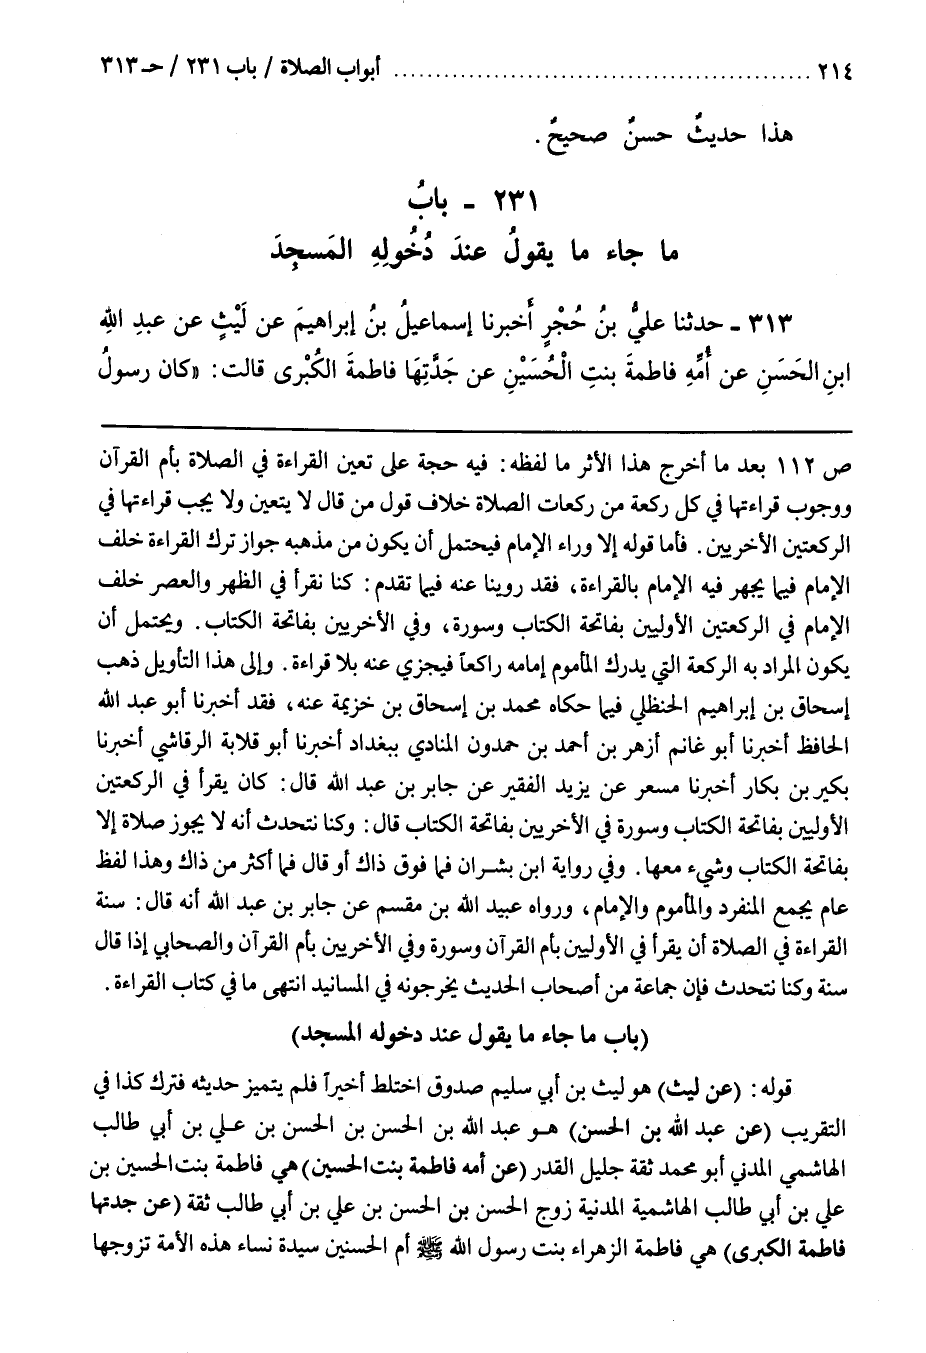 ٢١٤ ........................................ أبواب الصلاة / باب ٢٣١ / حـ ٣١٣
هذا حديثٌ حسنٌ صحيحٌ.
٢٣١ ـ بابُ
ما جاء ما يقولُ عندَ دُخُولِهِ المَسجِدَ
٣١٣ ـ حدثنا عليُّ بنُ حُجْرٍ أَخبرنا إسماعيلُ بنُ إبراهيمَ عن لَيْثٍ عن عبدِ اللهِ
ابنِ الحَسَنِ عن أُمِّهِ فاطمةَ بنتِ الْحُسَيْنِ عن جَدَّتِهَا فاطمةَ الكُبْرى قالت: «كان رسولُ
ص ١١٢ بعد ما أخرج هذا الأثر ما لفظه: فيه حجة على تعين القراءة في الصلاة بأم القرآن
ووجوب قراءتها في كل ركعة من ركعات الصلاة خلاف قول من قال لا يتعين ولا يجب قراءتها في
الركعتين الأخريين. فأما قوله إلا وراء الإمام فيحتمل أن يكون من مذهبه جواز ترك القراءة خلف
الإمام فيما يجهر فيه الإمام بالقراءة، فقد روينا عنه فيما تقدم: كنا نقرأ في الظهر والعصر خلف
الإمام في الركعتين الأوليين بفاتحة الكتاب وسورة، وفي الأخريين بفاتحة الكتاب. ويحتمل أن
يكون المراد به الركعة التي يدرك المأموم إمامه راكعاً فيجزي عنه بلا قراءة. وإلى هذا التأويل ذهب
إسحاق بن إبراهيم الحنظلي فيما حكاه محمد بن إسحاق بن خزيمة عنه، فقد أخبرنا أبو عبد الله
الحافظ أخبرنا أبو غانم أزهر بن أحمد بن حمدون المنادي ببغداد أخبرنا أبو قلابة الرقاشي أخبرنا
بكير بن بكار أخبرنا مسعر عن يزيد الفقير عن جابر بن عبد الله قال: كان يقرأ في الركعتين
الأوليين بفاتحة الكتاب وسورة في الأخريين بفاتحة الكتاب قال: وكنا نتحدث أنه لا يجوز صلاة إلا
بفاتحة الكتاب وشيء معها. وفي رواية ابن بشران فما فوق ذاك أو قال فما أكثر من ذاك وهذا لفظ
عام يجمع المنفرد والمأموم والإمام، ورواه عبيد الله بن مقسم عن جابر بن عبد الله أنه قال: سنة
القراءة في الصلاة أن يقرأ في الأوليين بأم القرآن وسورة وفي الأخريين بأم القرآن والصحابي إذا قال
سنة وكنا نتحدث فإن جماعة من أصحاب الحديث يخرجونه في المسانيد انتهى ما في كتاب القراءة.
(باب ما جاء ما يقول عند دخوله المسجد)
قوله: (عن ليث) هو ليث بن أبي سليم صدوق اختلط أخيراً فلم يتميز حديثه فترك كذا في
التقريب (عن عبد الله بن الحسن) هـو عبد الله بن الحسن بن الحسن بن عـلي بن أبي طالب
الهاشمي المدني أبو محمد ثقة جليل القدر (عن أمه فاطمة بنت الحسين) هي فاطمة بنت الحسين بن
علي بن أبي طالب الهاشمية المدنية زوج الحسن بن الحسن بن علي بن أبي طالب ثقة (عن جدتها
فاطمة الكبرى) هي فاطمة الزهراء بنت رسول الله ﷺ أم الحسنين سيدة نساء هذه الأمة تزوجها